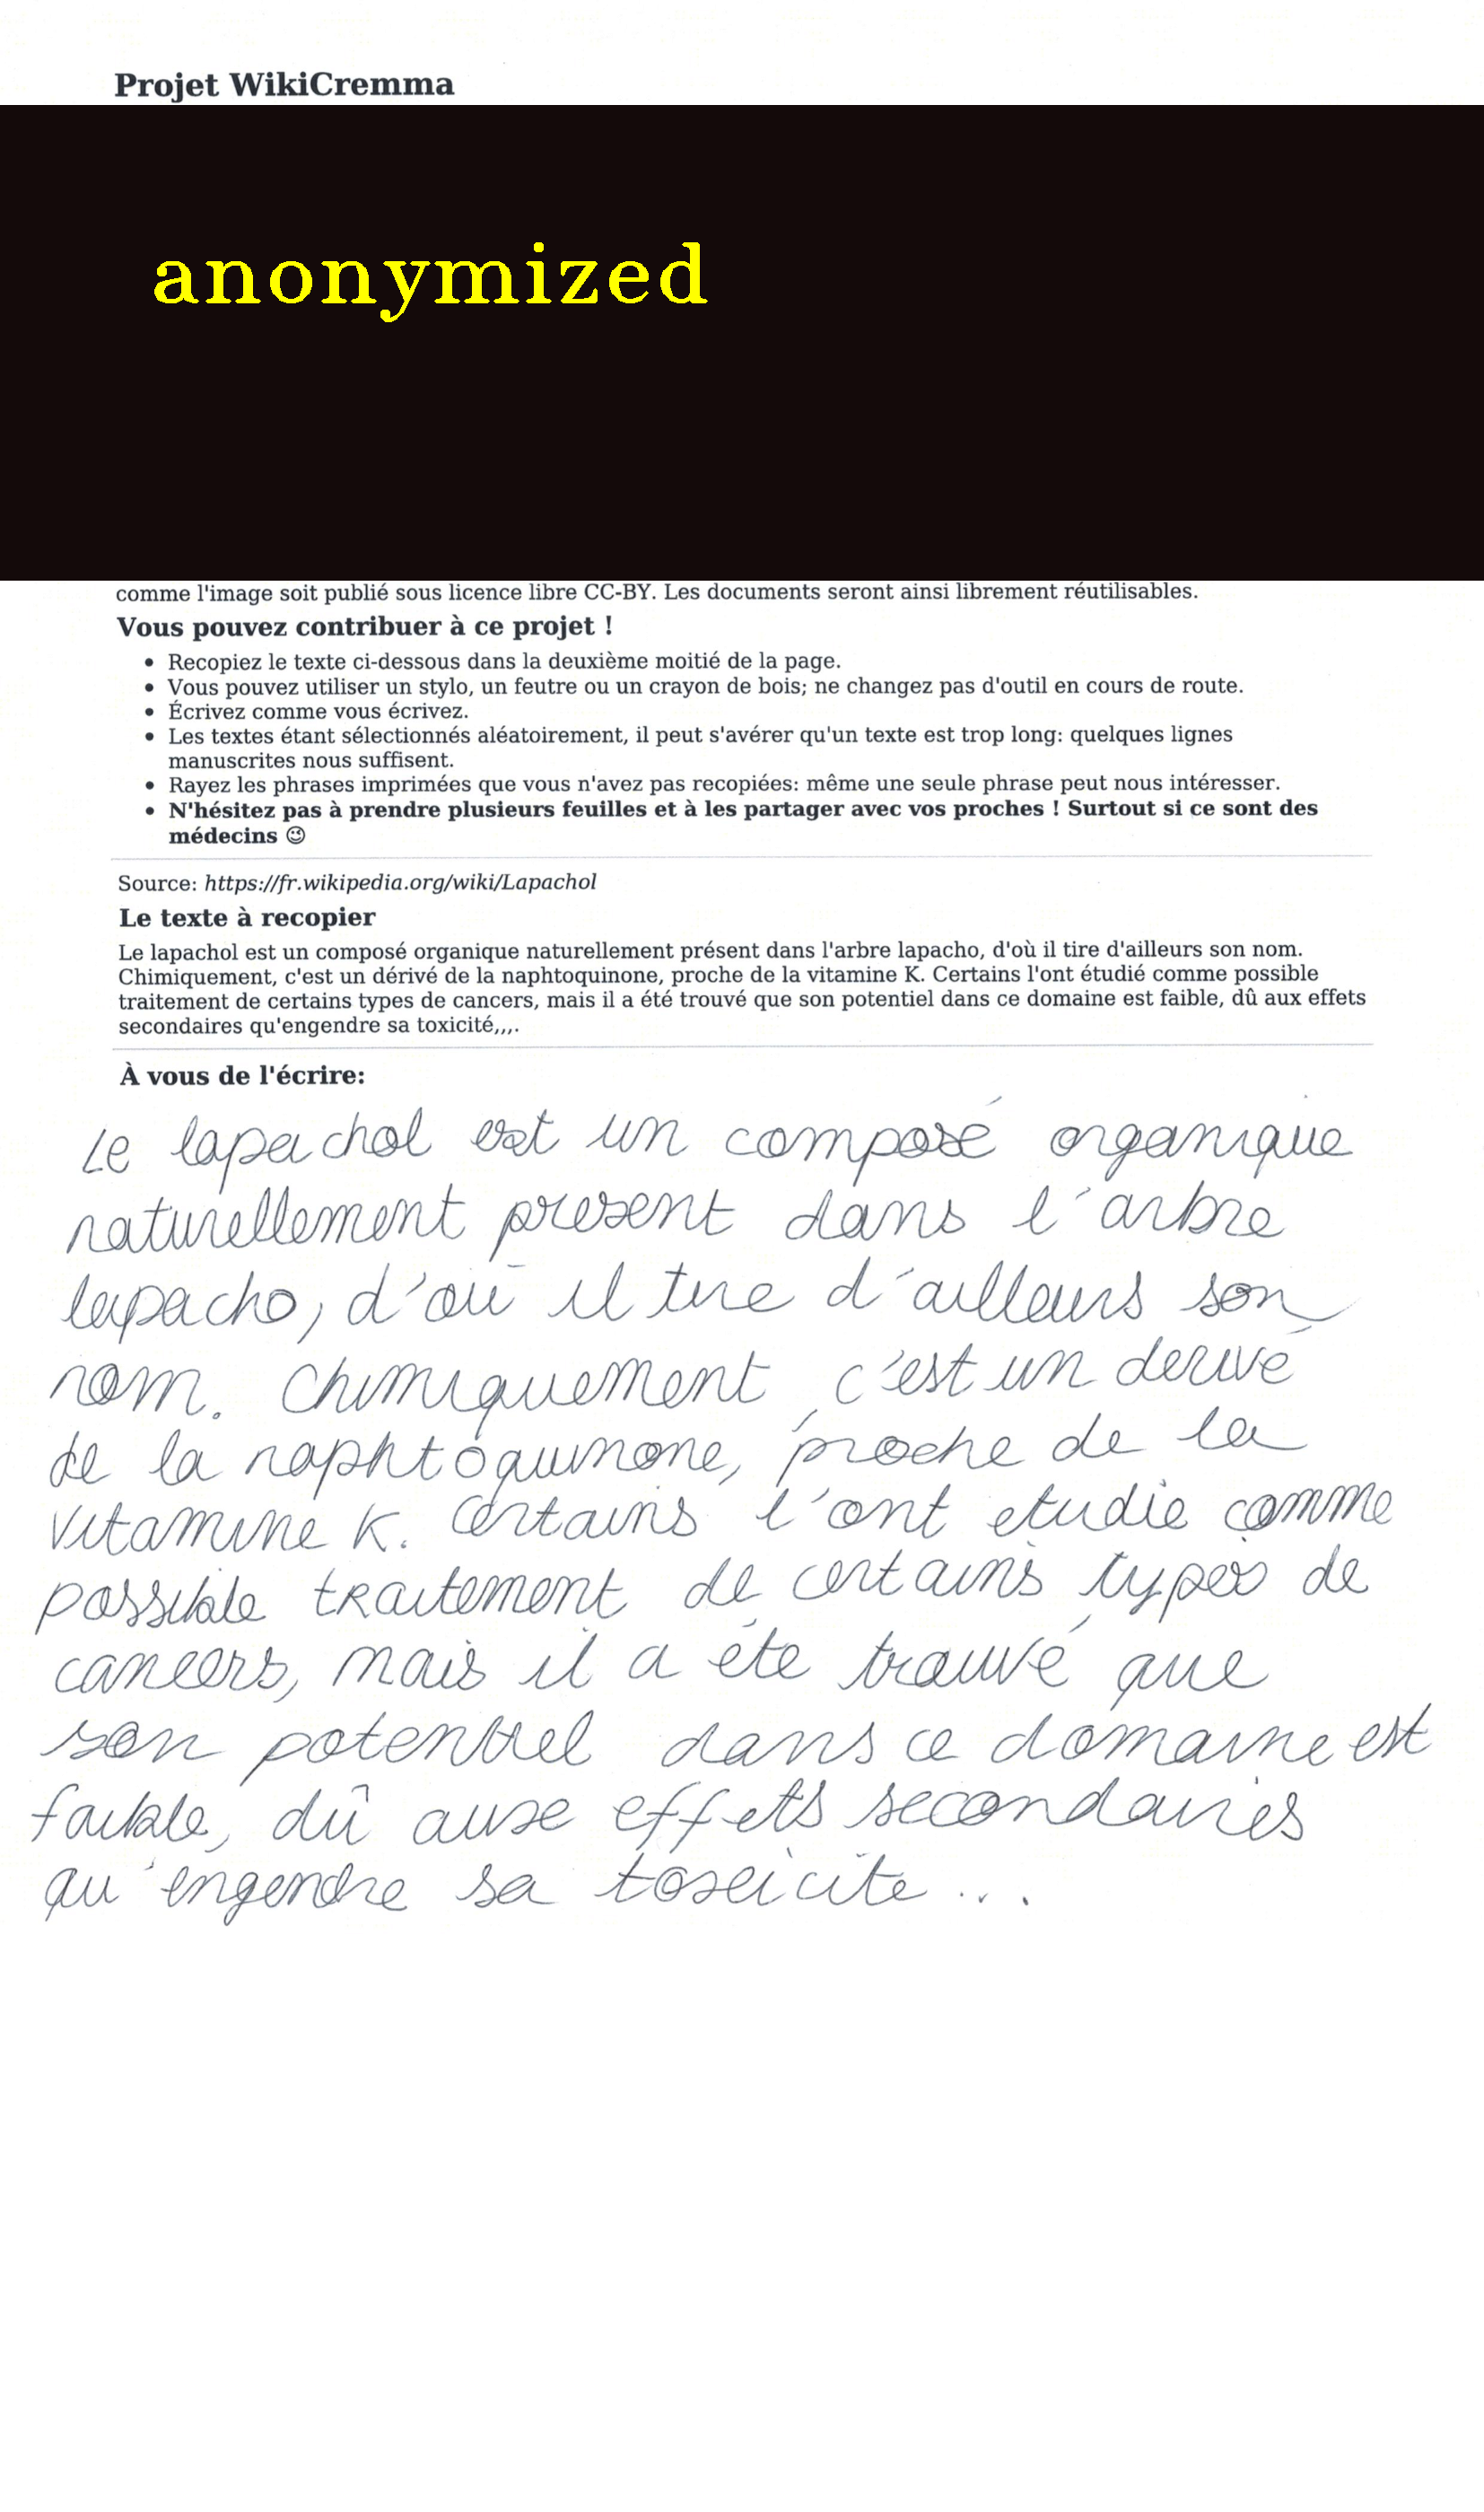 Projet WikiCremma
anonymized
comme l'image soit publié sous licence libre CC-BY. Les documents seront ainsi librement réutilisables.
Vous pouvez contribuer à ce projet !
• Recopiez le texte ci-dessous dans la deuxième moitié de la page.
• Vous pouvez utiliser un stylo, un feutre ou un crayon de bois; ne changez pas d'outil en cours de route.
• Écrivez comme vous écrivez.
• Les textes étant sélectionnés aléatoirement, il peut s'avérer qu'un texte est trop long: quelques lignes
manuscrites nous suffisent.
• Rayez les phrases imprimées que vous n'avez pas recopiées: même une seule phrase peut nous intéresser.
• N'hésitez pas à prendre plusieurs feuilles et à les partager avec vos proches ! Surtout si ce sont des
médecins 😉
Source: https://fr.wikipedia.org/wiki/Lapachol
Le texte à recopier
Le lapachol est un composé organique naturellement présent dans l'arbre lapacho, d'où il tire d'ailleurs son nom.
Chimiquement, c'est un dérivé de la naphtoquinone, proche de la vitamine K. Certains l'ont étudié comme possible
traitement de certains types de cancers, mais il a été trouvé que son potentiel dans ce domaine est faible, dû aux effets
secondaires qu'engendre sa toxicité,,,.
À vous de l'écrire:
Le lapachol est un composé organique
naturellement present dans l'arbre
lapacho, d'où il tire d'ailleurs son
nom. Chimiquement, c'est un dérivé
de la naphtoquinone, proche de la
vitamine K. Certains l'ont etudie comme
possible traitement de certains types de
cancers, mais il a éte trouvé que
son potentiel dans ce domaine est
faible, dû aux effets secondaires
qu'engendre sa toxicite...